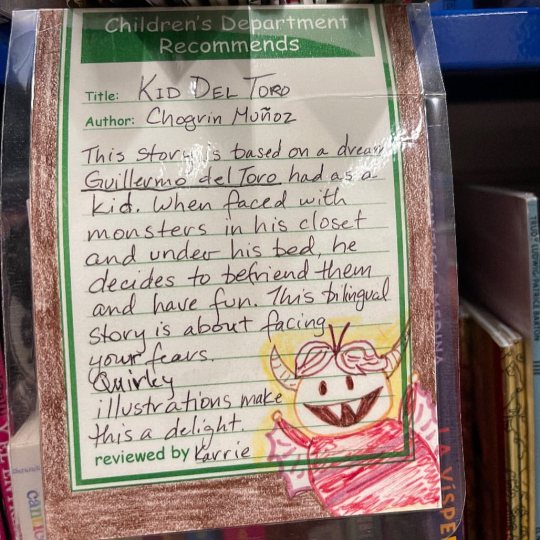 Children's Department
Recommends
Title: KID DEL TORO
Author: Chogrin Muñoz
This story is based on a dream
Guillermo del Toro had as a
kid. When faced with
monsters in his closet
and under his bed, he
decides to befriend them
and have fun. This bilingual
story is about facing
your fears.
Quirky
illustrations make
this a delight.
reviewed by Karrie